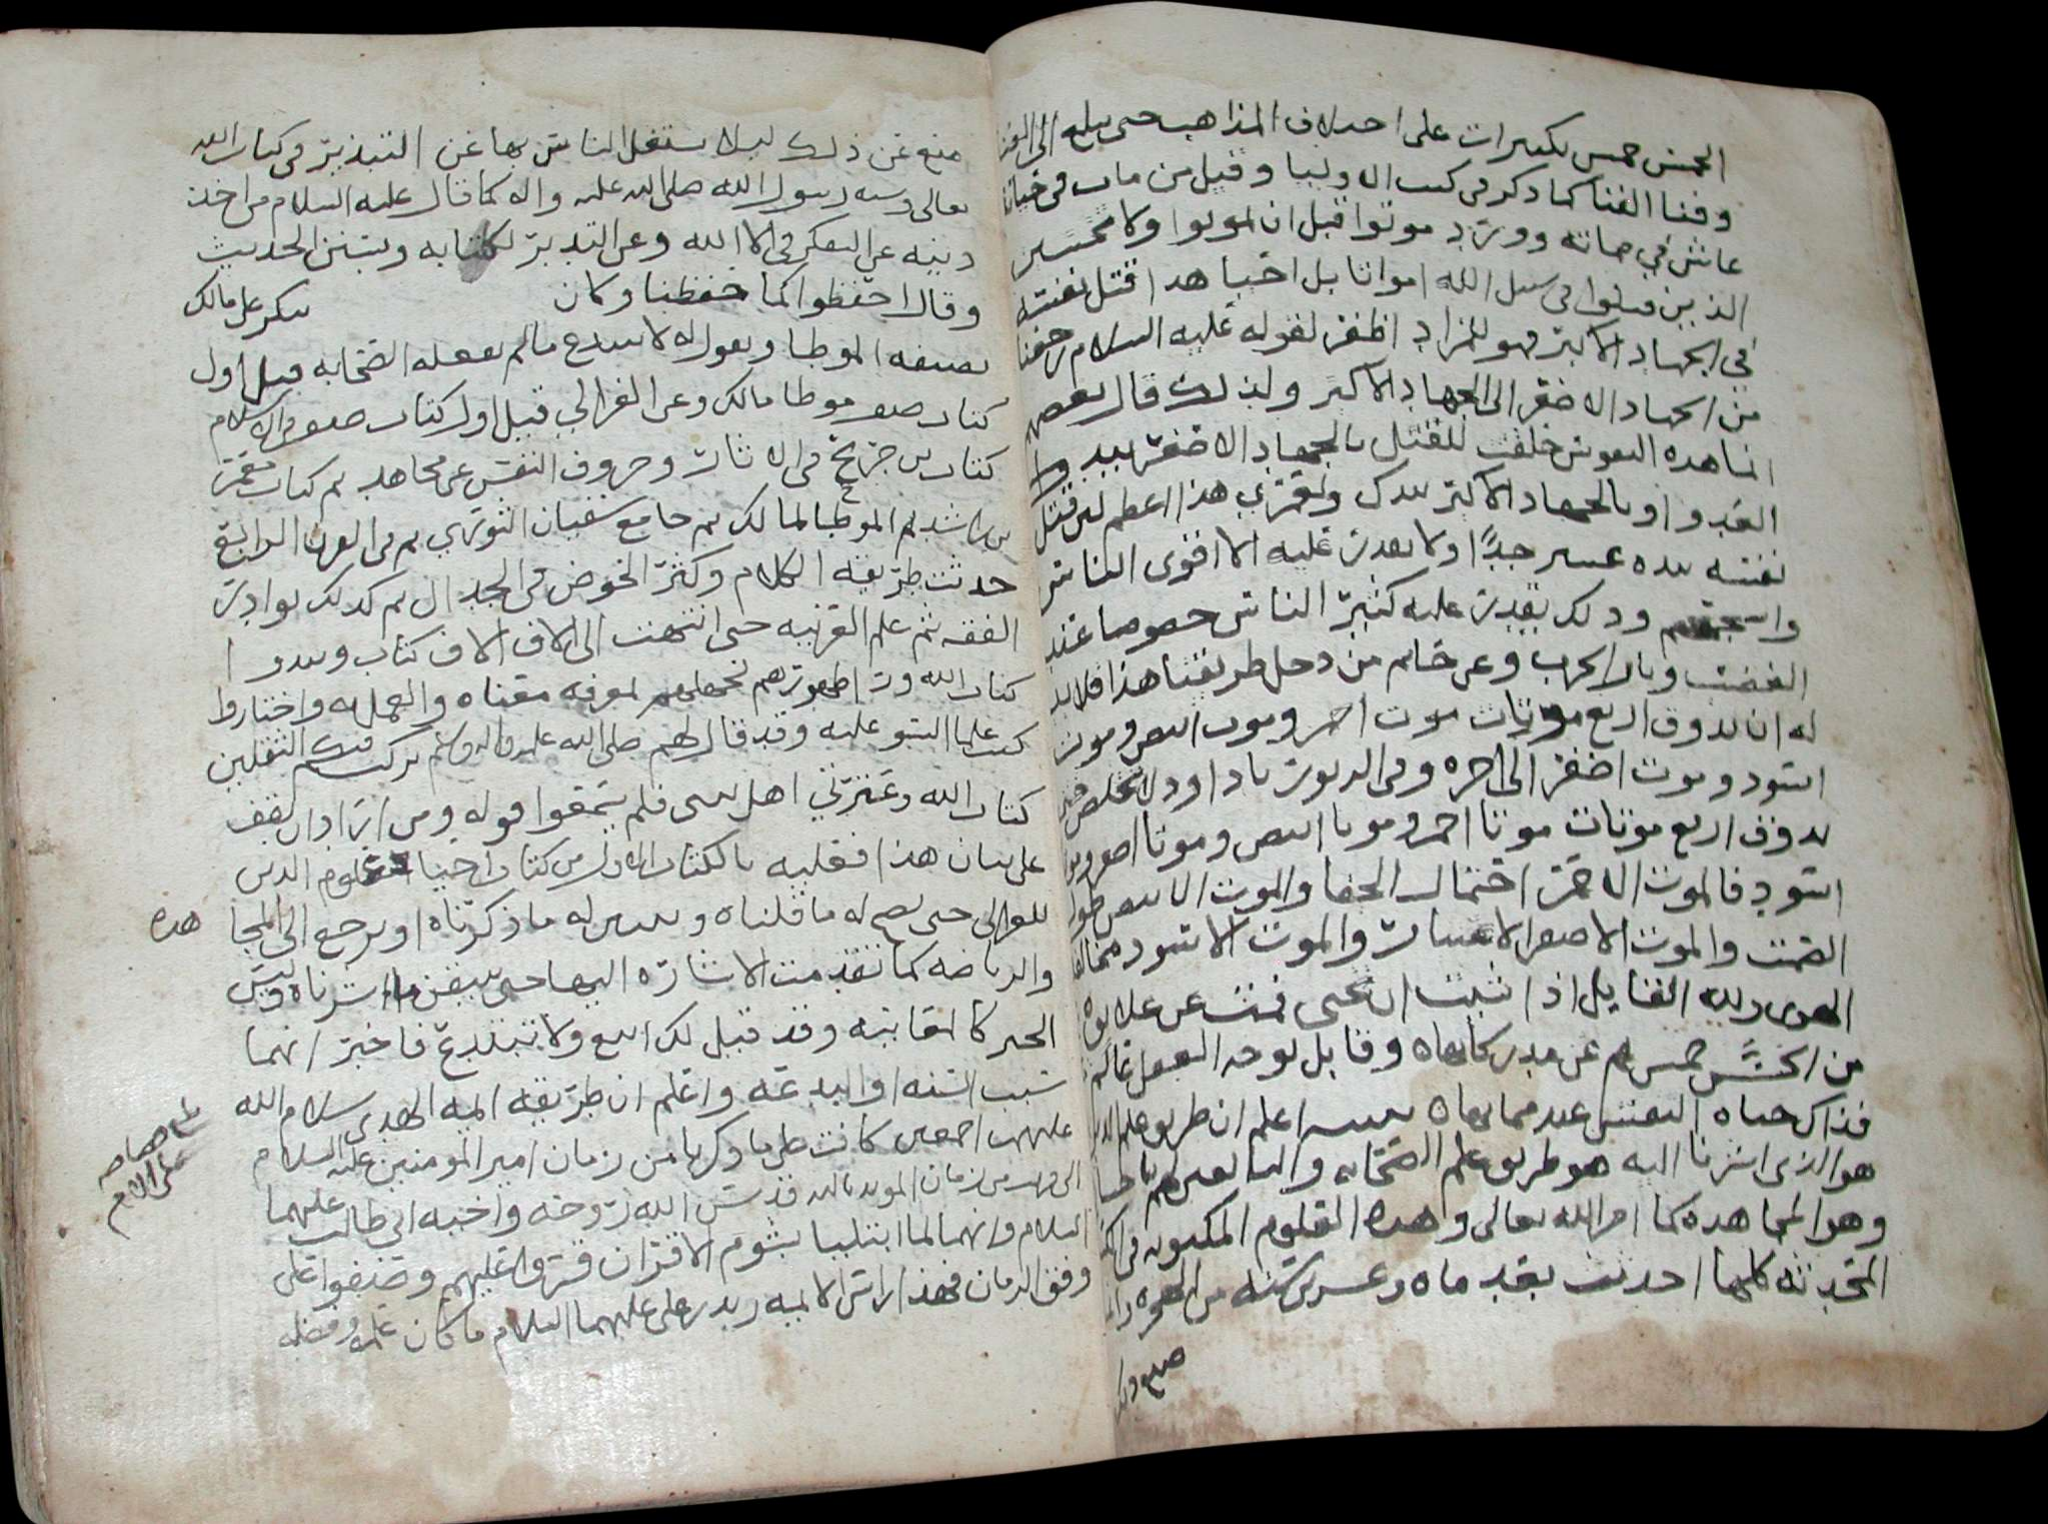 الخمس خمس تكبيرات على اختلاف المذاهب حتى يبلغ الى الفنا
وفنا الفنا كما ذكر في كتب الاوليا وقيل من مات في حياته
عاش في مماته وورد موتوا قبل ان تموتوا ولا تحسبن
الذين قتلوا في سبيل الله امواتا بل احيا هذا قتل نفسه
في الجهاد الاكبر فهو للمراد اظفر لقوله عليه السلام رجعنا
من الجهاد الاصغر الى الجهاد الاكبر ولذلك قال بعضهم
انما هذه النفوس خلقت للقتل بالجهاد الاصغر بيد
العدو او بالجهاد الاكبر بيدك ولعمري هذا اعظم لان قتل
نفسه بيده عسر جدًا ولا يقدر عليه الا اقوى الناس
وذلك يقدر عليه كثير الناس خصوصا عند
الغضب وثار الحرب وعن حاتم من دخل طريقنا هذا فلا بد
له ان يذوق اربع موتات موت احمر وموت ابيض وموت
اسود وموت اصفر الى اخره وفي الزبور يا داود لا تخلص حتى
تذوق اربع موتات موتا احمر وموتا ابيض وموتا اصفر وموتا
اسود فالموت الاحمر احتمال الجفا والموت الابيض طول
الصمت والموت الاصفر الاعتبار والموت الاسود مخالفة
الهوى ولله القايل اذا شيت ان تحيى فمت عن علايق
من الحس خمس ثم عن مدركاتها وقابل بوجه العقل عالم
فذاك حياة النفس عند مماتها تنبيه اعلم ان طريق علم
هو الذي اشرنا اليه هو طريق علم الصحابه والتابعين لهم باحسان
وهو المجاهده كما امر الله تعالى وهذه العلوم المكتوبه في
المحدثه كلها احدثت بعد مايه وعشرين سنه من الهجره
منع عن ذلك ليلا يشتغل الناس بها عن التدبر في كتاب الله
تعالى وسنه رسول الله صلى الله عليه واله كما قال عليه السلام من اخذ
دينه عن التفكر في الا الله وعن التدبر لكتابه وبسنن الحديث
وقال احفظوا كما حفظنا وكان ينكر على مالك
تصنيفه الموطا ويقول له لا تبتدع ما لم يفعله الصحابه قيل اول
كتاب صنف موطا مالك وعن الغزالي قيل اول كتاب صنف في الاسلام
كتاب بن جريج في الاثار وحروف التفسير عن مجاهد ثم كتاب معمر
بن راشد ثم الموطا لمالك ثم جامع سفيان الثوري ثم في القرن الرابع
حدثت طريقه الكلام وكثر الخوض في الجدال ثم كذلك نوادر
الفقه ثم علم العربيه حتى انتهت الى الاف الاف كتاب ونبذوا
كتاب الله ورا ظهورهم لجهلهم لمعرفه معناه والعمل به واختاروا
كتب علما السو عليه وقد قال لهم صلى الله عليه واله وسلم تركت فيكم الثقلين
كتاب الله وعترتي اهل بيتي فلم يتمعوا قوله ومن اراد ان يقف
على بيان هذا فعليه بالكتاب الاول من كتاب احيا علوم الدين
للغزالي حتى يصح له ما قلناه ويتبين له ما ذكرناه او يرجع الى المجا هده
والرياضه كما تقدمت الاشاره اليها حتى يتيقن ما اشرناه وليس
الخبر كالمعاينه وقد قيل لك اتبع ولا تبتدع فاختر ايهما
شيت السنه او البدعه واعلم ان طريقه ايمه الهدى سلام الله
عليهم اجمعين كانت على ما ذكرنا من زمان امير المومنين عليه السلام
الى قريب من زمان المويد بالله قدس الله روحه واخيه ابي طالب عليهما
السلام وانهما لما ابتليا بشوم الاقران قسروا عليهم وصنفوا على
وفق الزمان فهذا راس الايمه زيد بن علي عليهما السلام ما كان علمه وفضله